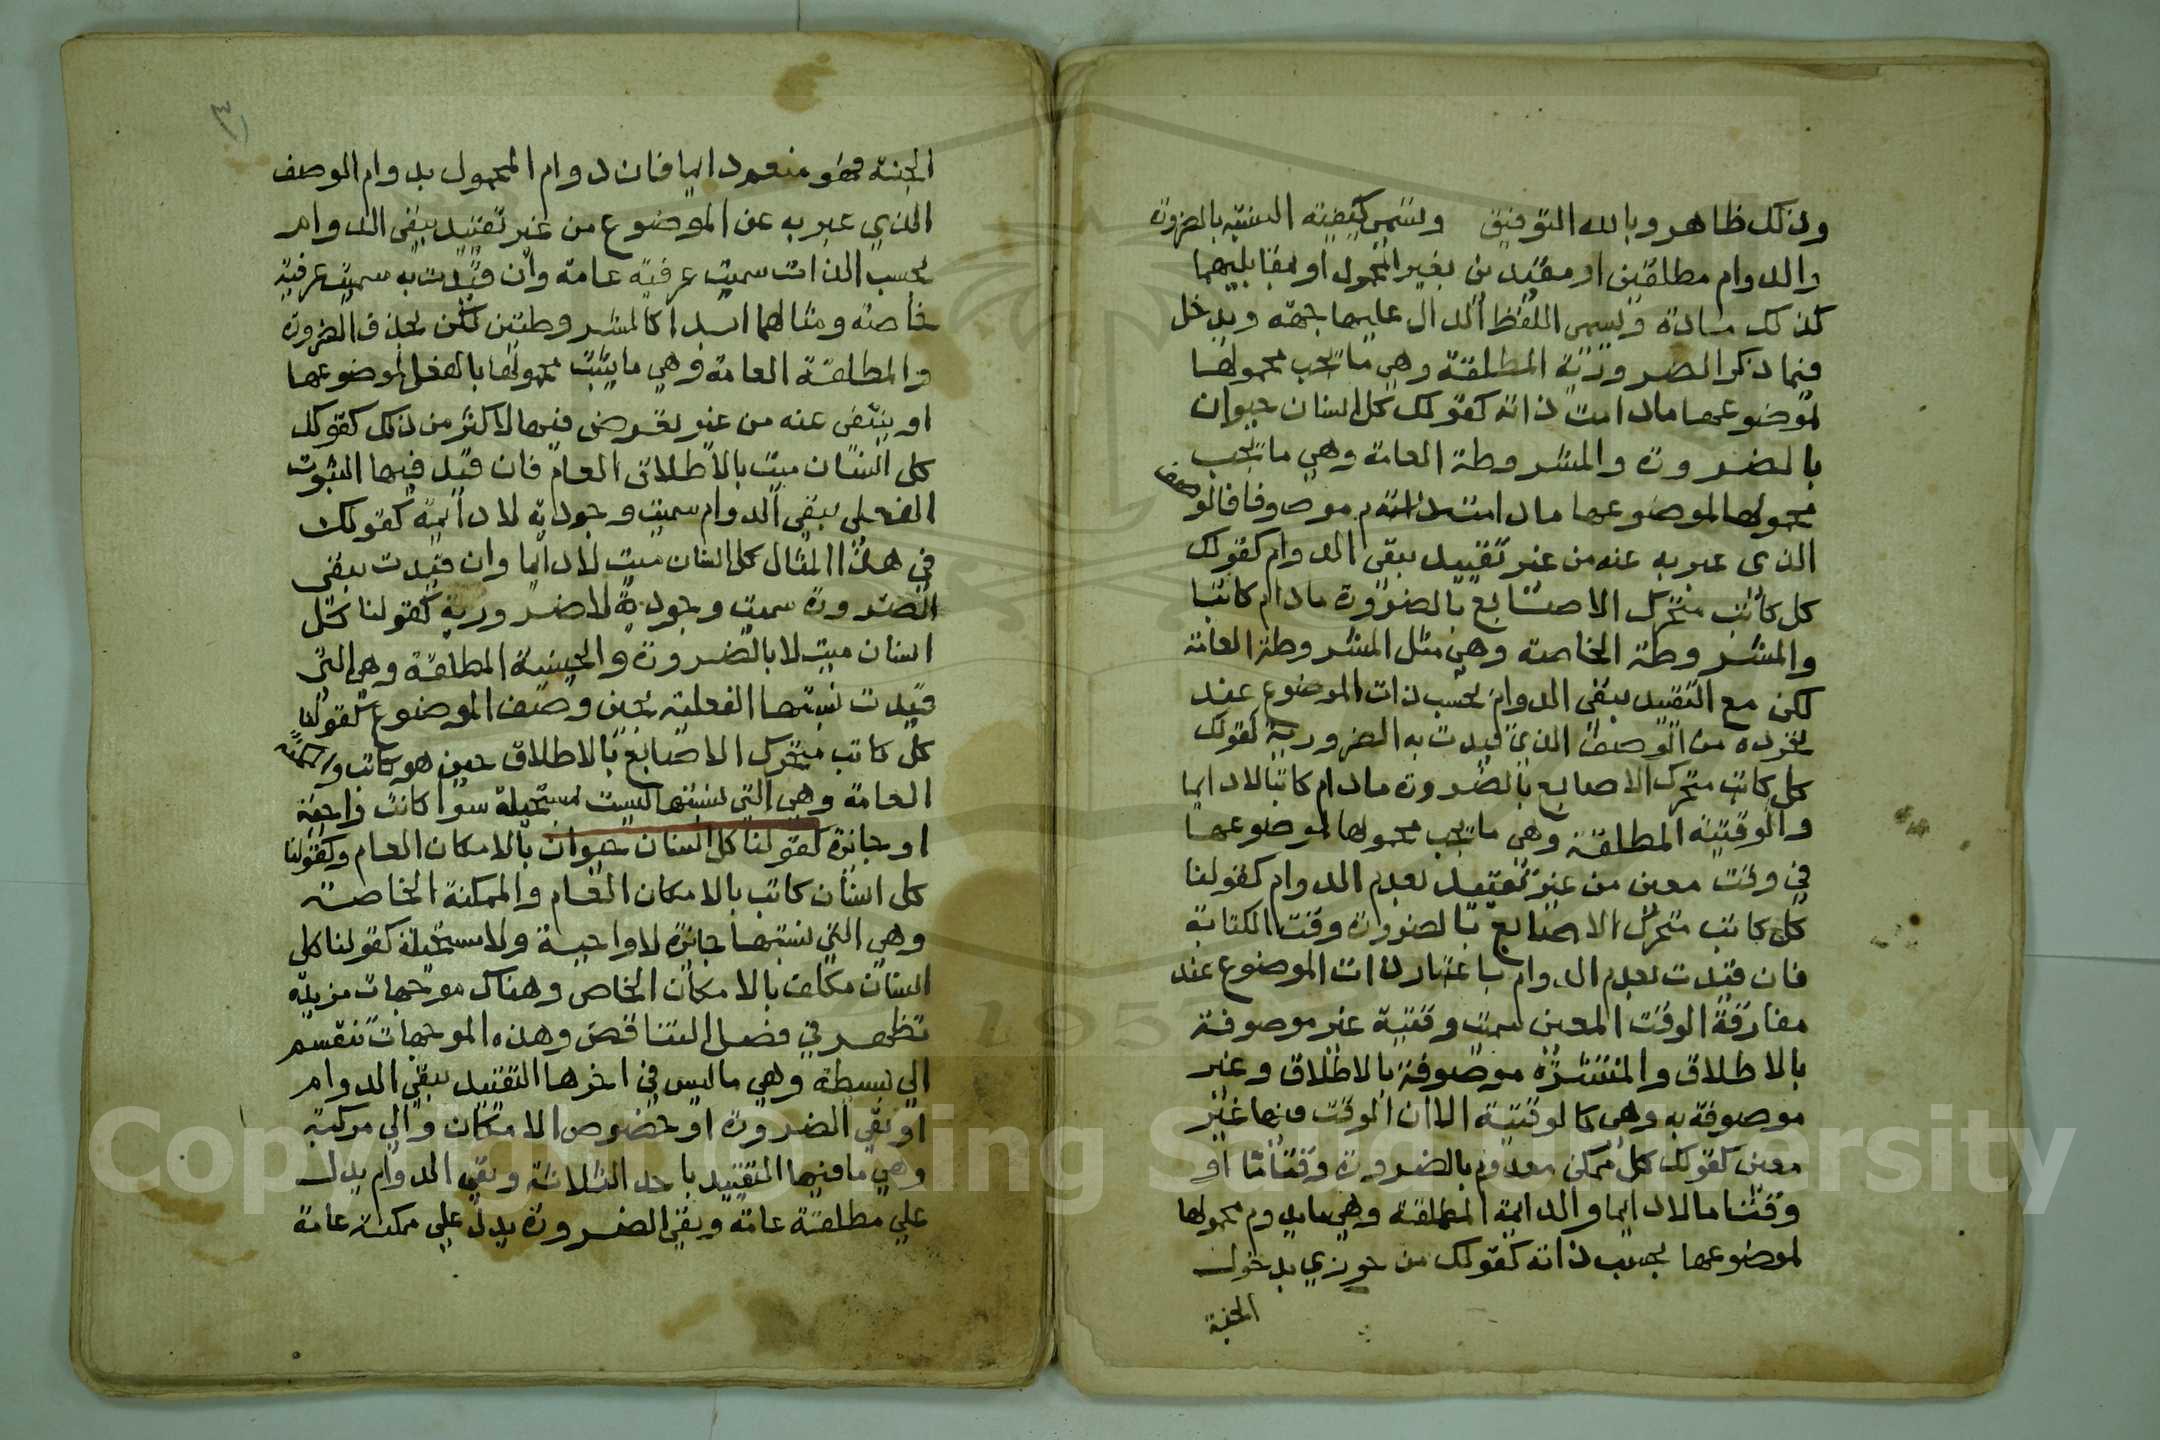 وذلك ظاهر وبالله التوفيق وتسمى كيفية النسبة بالضرورة
والدوام مطلقين او مقيدين بغير المحمول او بمقابليهما
كذلك مادة ويسمى اللفظ الدال عليها جهة ويدخل
فيما ذكر الضرورية المطلقة وهي ما يجب محمولها
لموضوعها مادامت ذاته كقولك كل انسان حيوان
بالضرورة والمشروطة العامة وهي ما يجب
محمولها لموضوعها مادامت ذاته موصوفا فالوصف
الذي عبر به عنه من غير تقييد بنفي الدوام كقولك
كل كاتب متحرك الاصابع بالضرورة مادام كاتبا
والمشروطة الخاصة وهي مثل المشروطة العامة
لكن مع التقييد بنفي الدوام بحسب ذات الموضوع عند
تجرده من الوصف الذي قيدت به الضرورية كقولك
كل كاتب متحرك الاصابع بالضرورة مادام كاتبا لا دايما
والوقتية المطلقة وهي ما يجب محمولها لموضوعها
في وقت معين من غير تقييد بعدم الدوام كقولنا
كل كاتب متحرك الاصابع بالضرورة وقت الكتابة
فان قيدت بعدم الدوام باعتبار ذات الموضوع عند
مفارقة الوقت المعين سميت وقتية غير موصوفة
بالاطلاق والمنتشرة موصوفة بالاطلاق وغير
موصوفة به وهي كالوقتية الا ان الوقت فيها غير
معين كقولك كل ممكن معدوم بالضرورة وقتا ما او
وقتا ما لا دايما والدايمة المطلقة وهي ما يدوم محمولها
لموضوعها بحسب ذاته كقولك من جوزي بدخول
الجنة
الجنة فهو منعم دايما فان دوام المحمول بدوام الوصف
الذي عبر به عن الموضوع من غير تقييد بنفي الدوام
بحسب الذات سميت عرفية عامة وان قيدت به سميت عرفية
خاصة ومثالهما ابدا كالمشروطتين لكن بحذف الضرورة
والمطلقة العامة وهي ما يثبت محمولها بالفعل لموضوعها
او ينتفي عنه من غير تعرض فيها لاكثر من ذلك كقولك
كل انسان ميت بالاطلاق العام فان قيد فيها الثبوت
الفعلي بنفي الدوام سميت وجودية لا دايمة كقولك
في هذا المثال كل انسان ميت لا دايما وان قيدت بنفي
الضرورة سميت وجودية لا ضرورية كقولنا كل
انسان ميت لا بالضرورة والحينية المطلقة وهي التي
قيدت نسبتها الفعلية بحين وصف الموضوع كقولنا
كل كاتب متحرك الاصابع بالاطلاق حين هو كاتب والممكنة
العامة وهي التي نسبتها ليست بمستحيلة سوا كانت واجبة
او جايزة كقولنا كل انسان حيوان بالامكان العام وكقولنا
كل انسان كاتب بالامكان العام والممكنة الخاصة
وهي التي نسبتها جايزة لا واجبة ولا مستحيلة كقولنا كل
انسان كاتب بالامكان الخاص وهناك موجهات مزيدة
تظهر في فصل التناقض وهذه الموجهات تنقسم
الي بسيطة وهي ما ليس في اخرها التقييد بنفي الدوام
او نفي الضرورة او خصوص الامكان والي مركبة
وهي ما فيها التقييد باحد الثلاثة ونفي الدوام يدل
علي مطلقة عامة ونفي الضرورة يدل علي ممكنة عامة
Copyright © King Saud University
1957